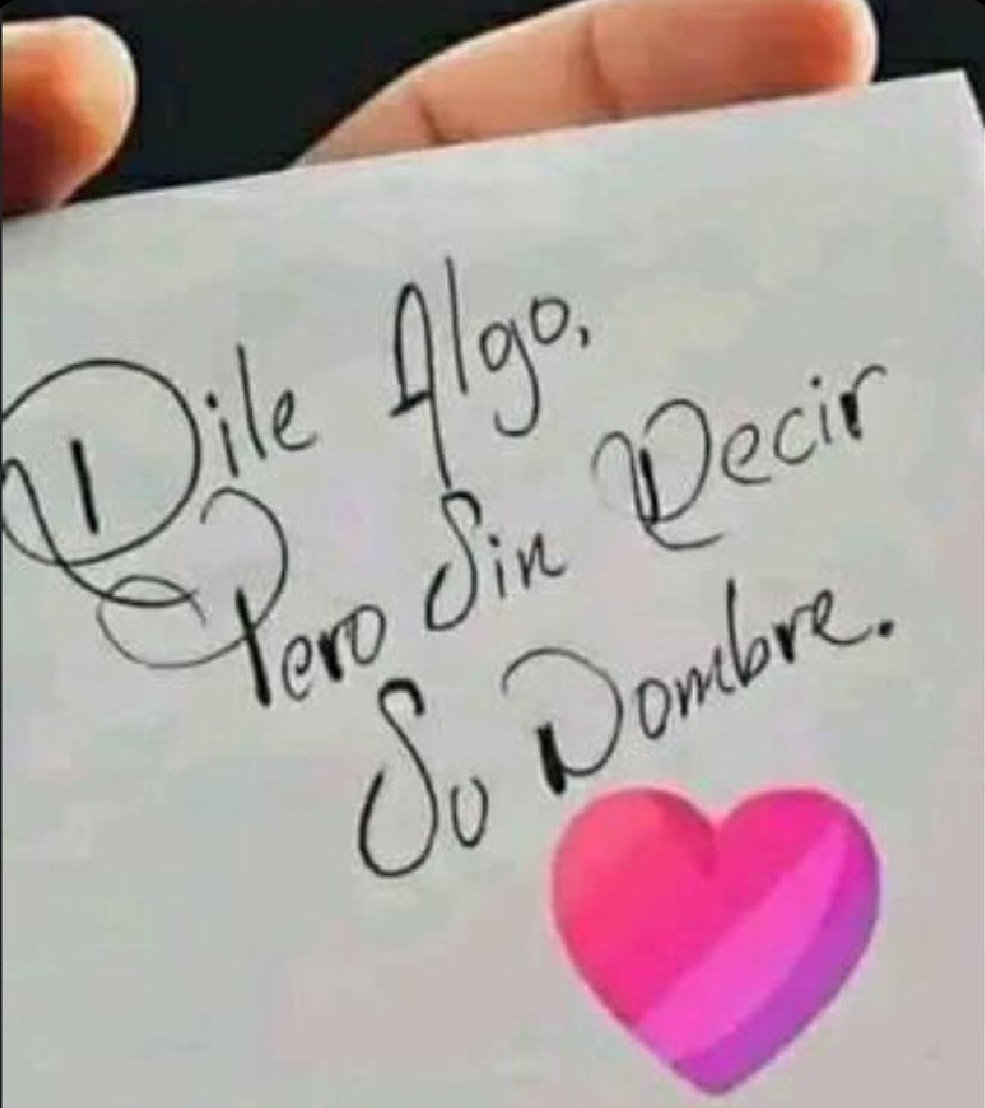 Dile Algo,
Pero Sin Decir
Su Nombre.